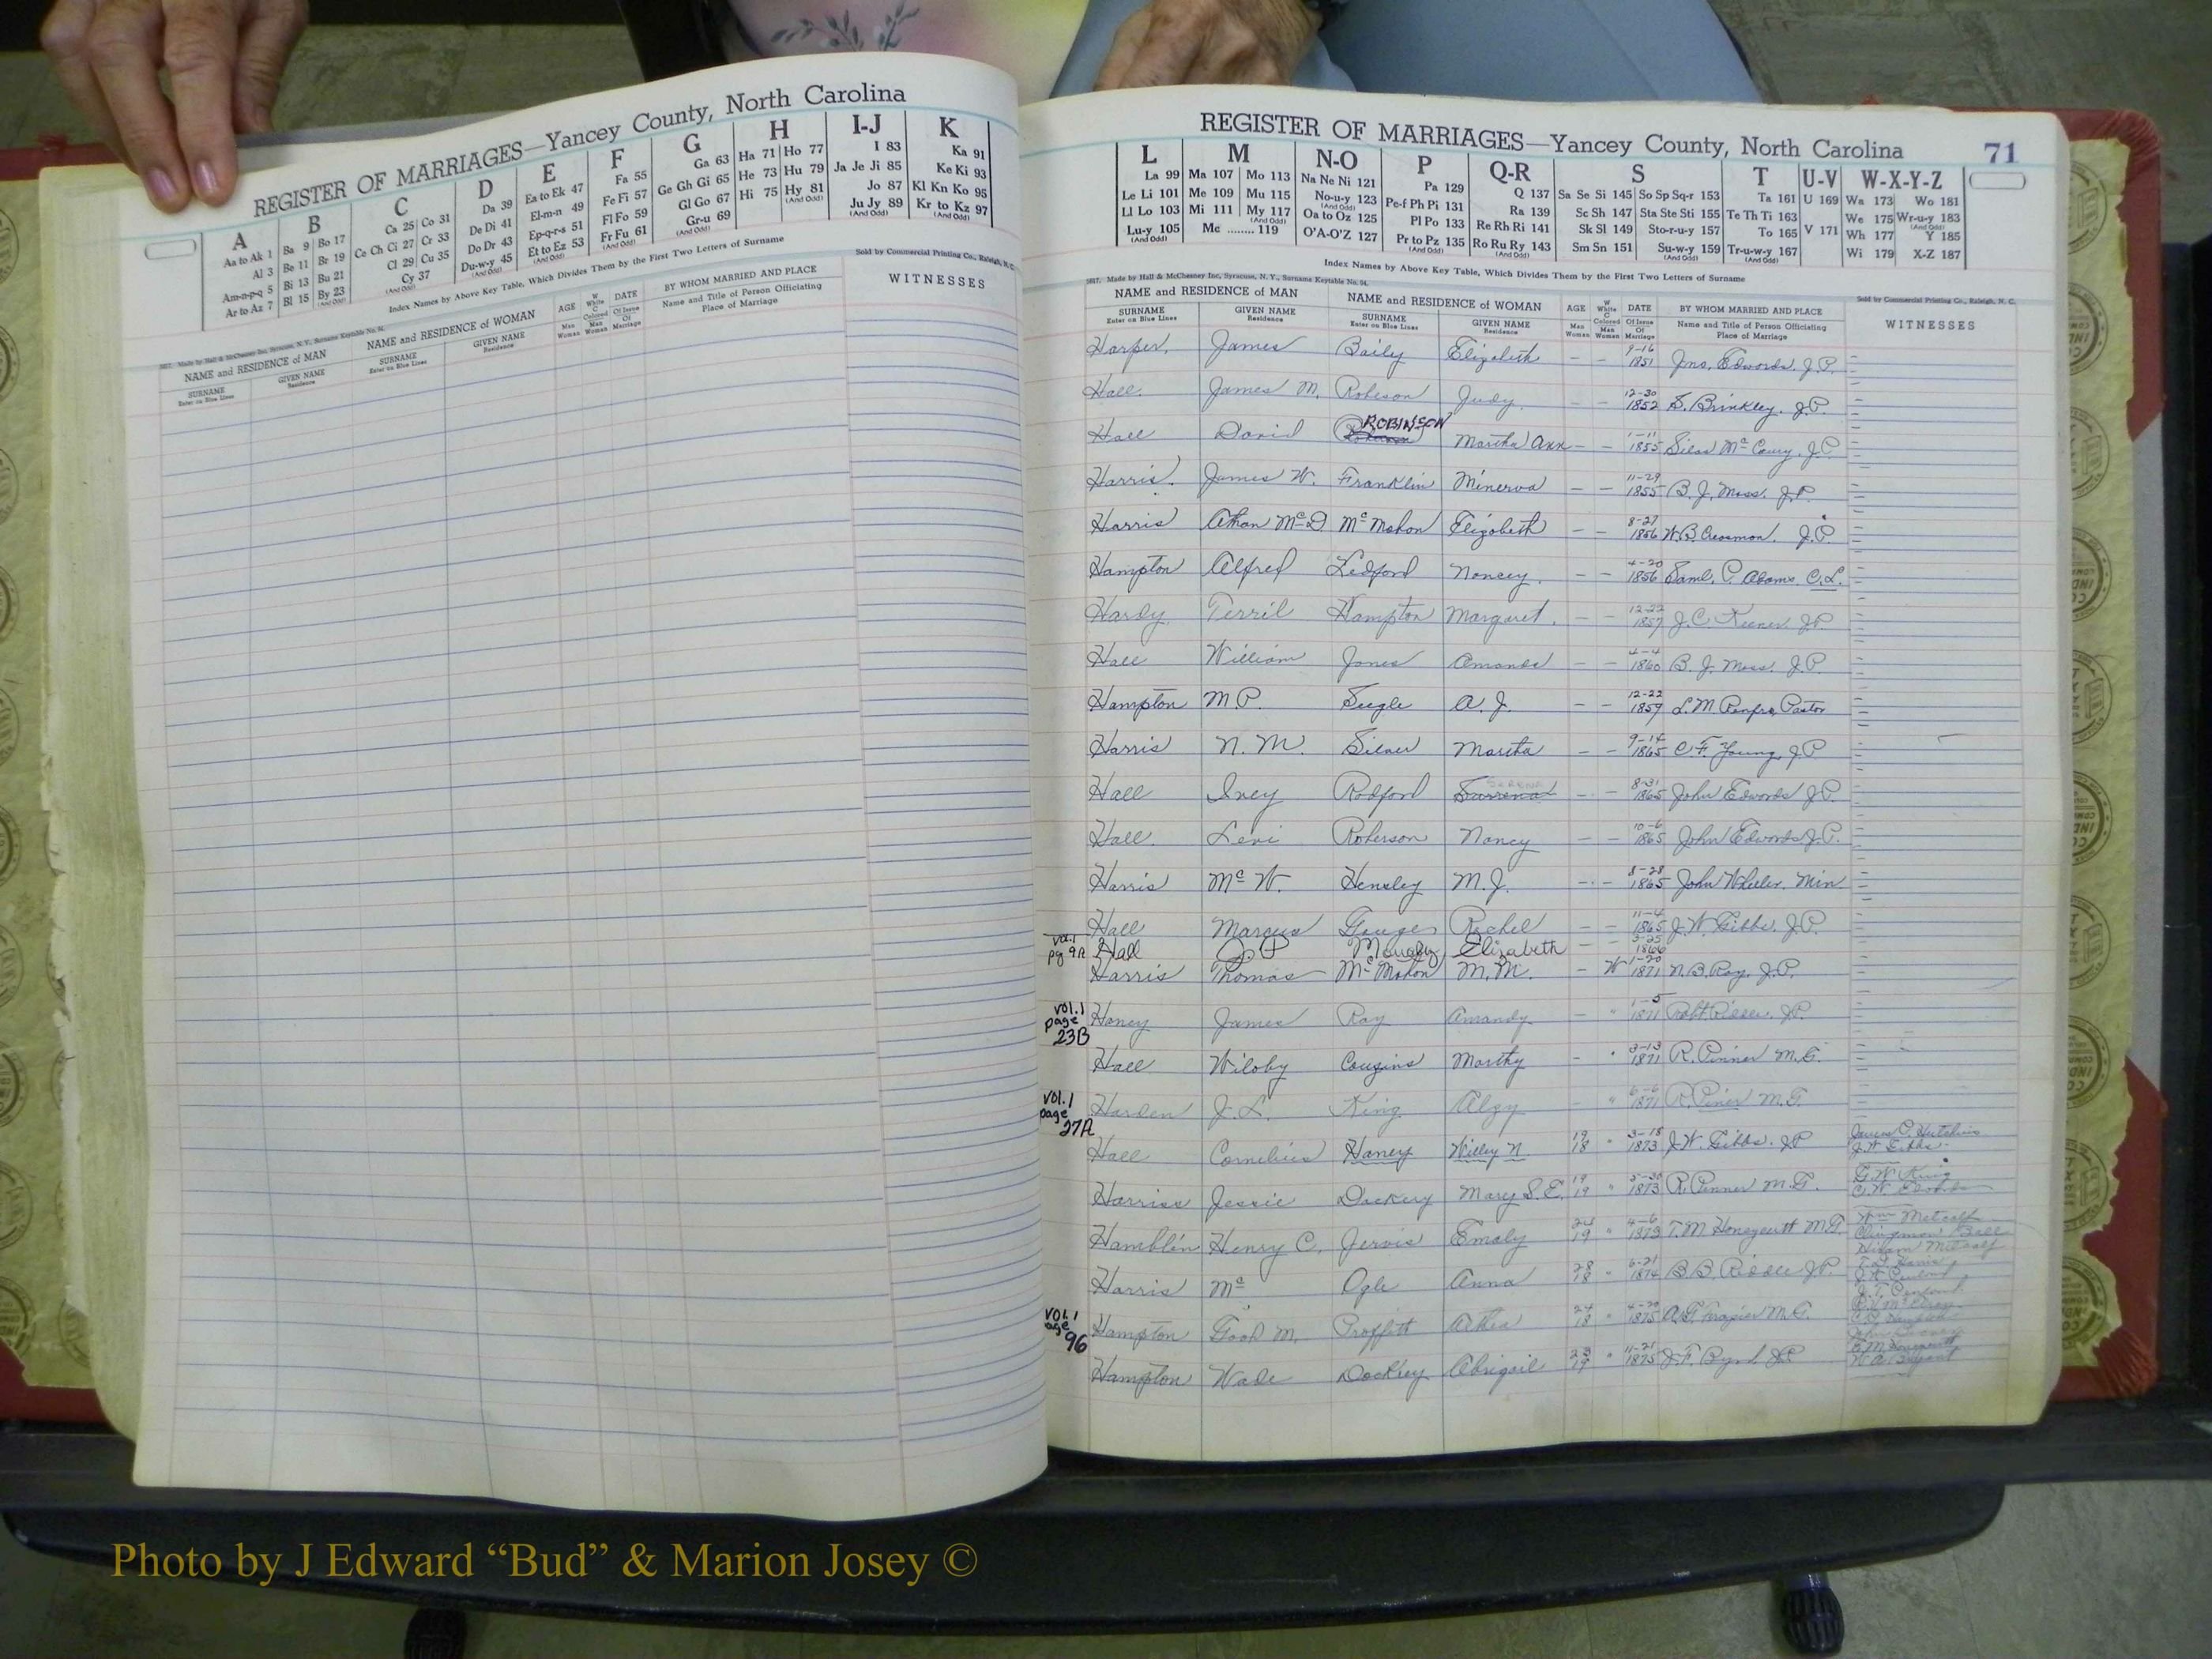 REGISTER OF MARRIAGES—Yancey County, North Carolina
A B C D E F G H I-J K
Aa to Ak 1 Ba 9 Bo 17 Ca 25 Co 31 Da 39 Ea to Ek 47 Fa 55 Ga 63 Ha 71 Ho 77 I 83 Ka 91
Al 3 Be 11 Br 19 Ce Ch Ci 27 Cr 33 De Di 41 El-m-n 49 Fe Fi 57 Ge Gh Gi 65 He 73 Hu 79 Ja Je Ji 85 Ke Ki 93
Am-n-p-q 5 Bi 13 Bu 21 Cl 29 Cu 35 Do Dr 43 Ep-q-r-s 51 Fl Fo 59 Gl Go 67 Hi 75 Hy 81 Jo 87 Kl Kn Ko 95
Ar to Az 7 Bl 15 By 23 Cy 37 Du-w-y 45 Et to Ez 53 Fr Fu 61 Gr-u 69 Ju Jy 89 Kr to Kz 97
(And Odd) (And Odd) (And Odd) (And Odd) (And Odd) (And Odd) (And Odd) (And Odd) (And Odd)
Index Names by Above Key Table, Which Divides Them by the First Two Letters of Surname
Sold by Commercial Printing Co., Raleigh, N. C.
NAME and RESIDENCE of MAN NAME and RESIDENCE of WOMAN AGE DATE BY WHOM MARRIED AND PLACE WITNESSES
SURNAME GIVEN NAME SURNAME GIVEN NAME Name and Title of Person Officiating
Enter on Blue Lines Residence Enter on Blue Lines Residence Place of Marriage
REGISTER OF MARRIAGES—Yancey County, North Carolina 71
L M N-O P Q-R S T U-V W-X-Y-Z
La 99 Ma 107 Mo 113 Na Ne Ni 121 Pa 129 Q 137 Sa Se Si 145 So Sp Sq-r 153 Ta 161 U 169 Wa 173 Wo 181
Le Li 101 Me 109 Mu 115 No-u-y 123 Pe-f Ph Pi 131 Ra 139 Sc Sh 147 Sta Ste Sti 155 Te Th Ti 163 We 175 Wr-u-y 183
Ll Lo 103 Mi 111 My 117 Oa to Oz 125 Pl Po 133 Re Rh Ri 141 Sk Sl 149 Sto-r-u-y 157 To 165 V 171 Wh 177 Y 185
Lu-y 105 Mc ........ 119 O'A-O'Z 127 Pr to Pz 135 Ro Ru Ry 143 Sm Sn 151 Su-w-y 159 Tr-u-w-y 167 Wi 179 X-Z 187
Index Names by Above Key Table, Which Divides Them by the First Two Letters of Surname
Made by Hall & McChesney Inc., Syracuse, N. Y., Surname Keytable No. 54. Sold by Commercial Printing Co., Raleigh, N. C.
NAME and RESIDENCE of MAN NAME and RESIDENCE of WOMAN AGE W White C Colored DATE BY WHOM MARRIED AND PLACE WITNESSES
SURNAME GIVEN NAME SURNAME GIVEN NAME Man Woman Man Woman Of Issue Of Marriage Name and Title of Person Officiating
Enter on Blue Lines Residence Enter on Blue Lines Residence Place of Marriage
Harper, James Baily Elizabeth – – 9-16 1851 Jno. Edwards, J.P.
Hall. James M. Roberson Judy. – – 12-30 1852 S. Brinkley. J.P.
Hall David ROBINSON Martha Ann – – 1-11 1855 Silas J.P.
Harris. James W. Franklin Minerva – – 11-29 1855 B. J. Moss. J.P.
Harris McD McMahon Elizabeth – – 8-27 1856 W.B. J.P.
Hampton Alfred Ledford Nancy. – – 4-20 1856 Saml. C. Adams, C.L.
Hardy Terril Hampton Margaret. – – 12-22 1857 J.C. Keener J.P.
Hall William Jones Amanda – – 4-4 1860 B. J. Moss. J.P.
Hampton M.P. Sugle A. J. – – 12-22 1859 L.M Renfro, Pastor
Harris N. M. Silver Martha – – 9-14 1865 C. F. Young, J.P
Hall Ivey Radford Surrena – – 8-31 1865 John Edwards J.P.
Hall. Levi Roberson Nancy – – 10-6 1865 John Edwards J.P.
Harris Mc W. Hensley M.J. – – 8-28 1865 John Wheeler, Min
Hall Marcus Gouge Rachel – – 11-4 1865 J.W. Gibbs, J.P.
Vol. 1 pg 9A Hall J P Elizabeth – – 3-25 1866
Harris Thomas McMahon M.M. – W 1-20 1871 N.B. Ray, J.P.
Vol. 1 page 23B Haney James Ray Amandy – " 1-5 1871 J.P.
Hall Wiloby Cousins Marthy – " 3-13 1871 R. Pinner M.G.
Vol. 1 page 27A Harden J. L. King Algy – " 6-6 1871 R. Piner M.G.
Hall Cornelius Haney Willey N. 19 18 " 3-18 1873 J.W. Gibbs. J.P James C. Hutchins J.W. Gibbs
Harriss Jessie Dockery Mary S.E. 19 19 " 5-30 1873 R. Penner M.G. G.W. King
Hamblin Henry C. Jervis Emaly 24 19 " 4-6 1873 T.M Honeycutt M.G. Wm Metcalf Clingman Ball Hiram Metcalf
Harris Mc Ogle Anna 28 18 " 6-21 1874 B.B. Riddle J.P.
Vol. 1 page 96 Hampton Good M. Proffitt Arthia 24 18 " 4-20 1875 A.G. Frazier M.G.
Hampton Wade Dockrey Abigail 23 19 " 11-21 1875 J.F. Byrd J.P
Photo by J Edward “Bud” & Marion Josey ©